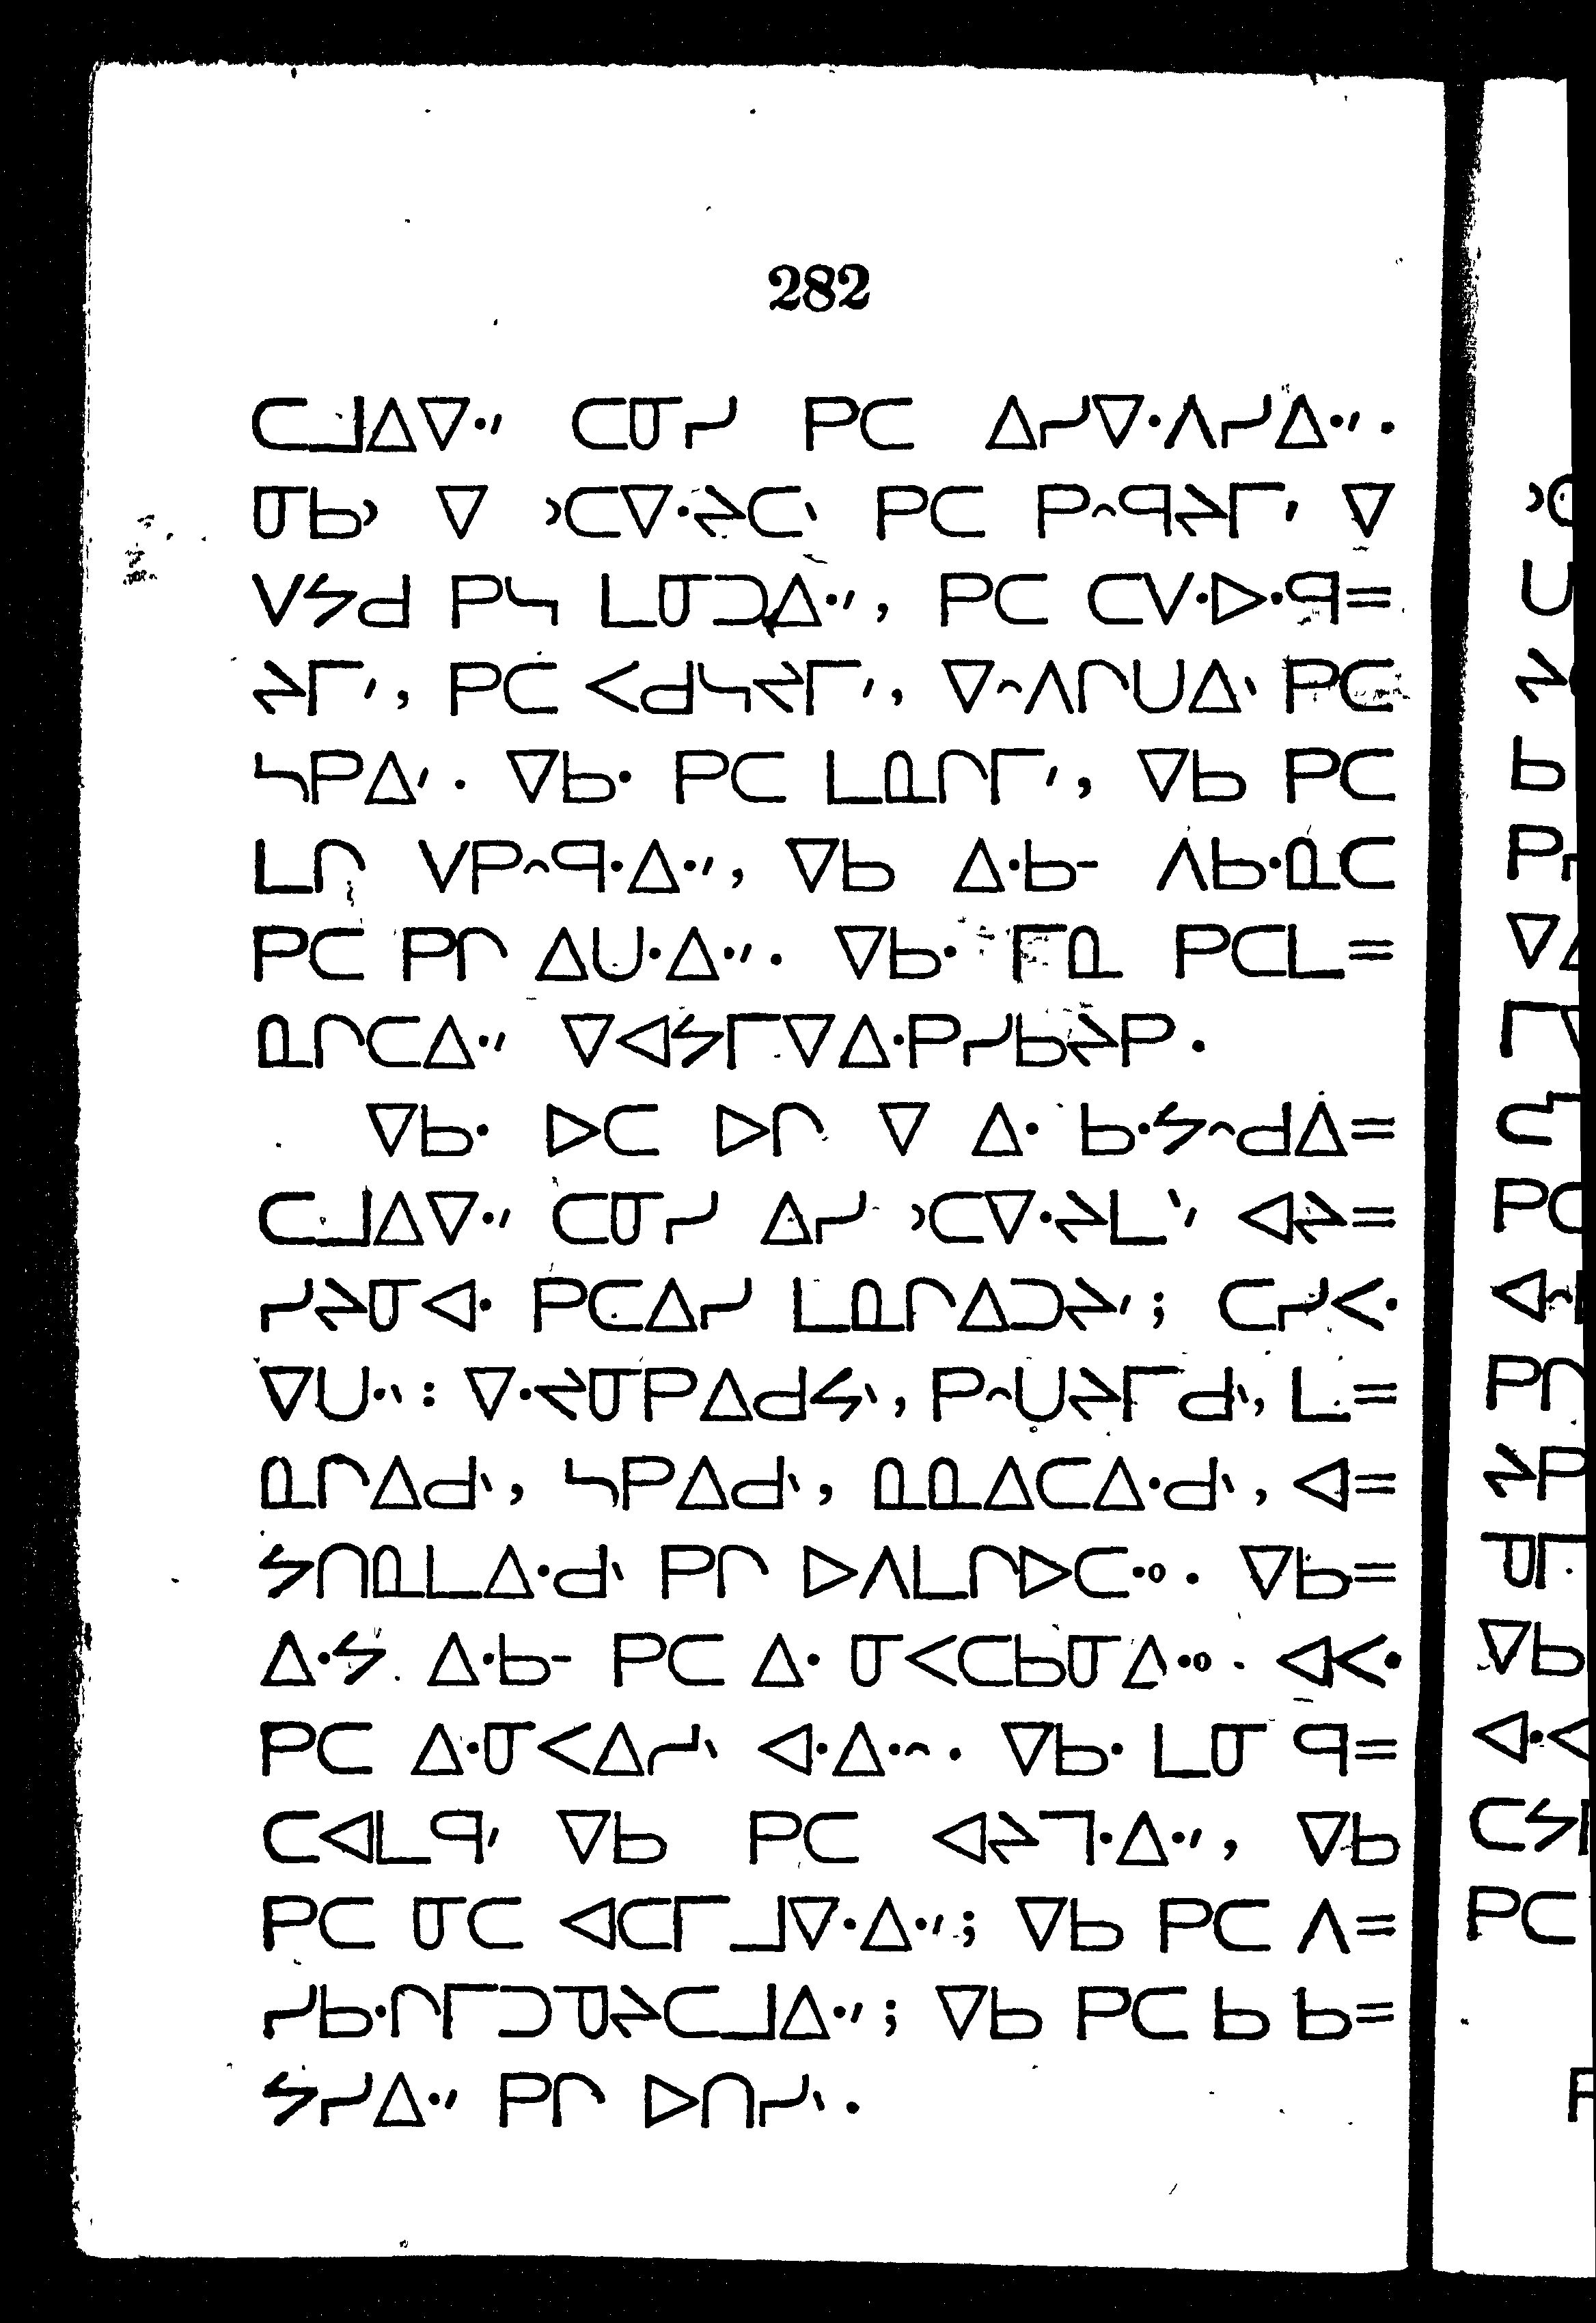 282
ᑕᒧᐃᐁᐧᐟ ᑕᓂᓯ ᑭᑕ ᐃᓯᐁᐧᐱᓯᐃᐧᐟ.
ᓂᑲᐣ ᐁ ᐣᑕᐁᐧᔨᑕᐠ ᑭᑕ ᑭᐢᑫᔨᒥᐟ ᐁ
ᐯᔭᑯ ᑭᓭ ᒪᓂᑐᐃᐧᐟ, ᑭᑕ ᑕᐯᐧᐅᐧᑫ=
ᔨᒥᐟ, ᑭᑕ ᐸᑯᓭᔨᒥᐟ, ᐁᐢᐱᒋᑌᐃᐠ ᑭᑕ
ᓴᑭᐃᐟ. ᐁᑲᐧ ᑭᑕ ᒪᓇᒋᒥᐟ, ᐁᑲ ᑭᑕ
ᒪᒋ ᐯᑭᐢᑫᐧᐃᐧᐟ, ᐁᑲ ᐃᐧᑲᐨ ᐱᑲᐧᓇᑕ
ᑭᑕ ᑭᒋ ᐃᑌᐧᐃᐧᐟ. ᐁᑲᐧ ᒥᓇ ᑭᑕᒪ=
ᓇᒋᑕᐃᐧᐟ ᐁᐊᔭᒥᐁᐃᐧᑭᓯᑲᔨᑭ.
ᐁᑲᐧ ᐅᑕ ᐅᒋ ᐁ ᐃᐧ ᑲᐧᔭᐢᑯᐃ=
ᑕᒧᐃᐁᐧᐟ ᑕᓂᓯ ᐃᓯ ᐣᑕᐁᐧᔨᒪᐠᐟ ᐊᔨ=
ᓯᔨᓂᐊᐧ ᑭᑕᐃᓯ ᒪᓇᒋᐃᑐᔨᐟ; ᑕᓯᐸᐧ
ᐁᑌᐧᐠ: ᐁᐧᔨᓂᑭᐃᑯᔪᐠ, ᑭᐢᑌᔨᒥᑯᐠ, ᒪ=
ᓇᒋᐃᑯᐠ, ᓴᑭᐃᑯᐠ, ᓇᓇᐃᑕᐃᐧᑯᐠ, ᐊ=
ᔭᑎᓇᒪᐃᐧᑯᐠ ᑭᒋ ᐅᐱᒪᒋᐅᑕᐧᐤ. ᐁᑲ=
ᐃᐧᔭ ᐃᐧᑲᐨ ᑭᑕ ᐃᐧ ᓂᐸᑕᑲᓂᐃᐧᐤ. ᐊᐸᐧ
ᑭᑕ ᐃᐧᓂᐸᐃᓯᐠ ᐊᐧᐃᐧᐢ. ᐁᑲᐧ ᒪᓂ ᑫ=
ᑕᐊᒪᑫᐟ ᐁᑲ ᑭᑕ ᐊᔨᒣᐧᐃᐧᐟ, ᐁᑲ
ᑭᑕ ᓂᑕ ᐊᑕᒥᒧᐁᐧᐃᐧᐟ; ᐁᑲ ᑭᑕ ᐱ=
ᓯᑲᐧᒋᒥᑐᓀᔨᑕᒧᐃᐧᐟ; ᐁᑲ ᑭᑕ ᑲ ᑲ=
ᔭᓯᐃᐧᐟ ᑭᒋ ᐅᑎᓯᐠ.